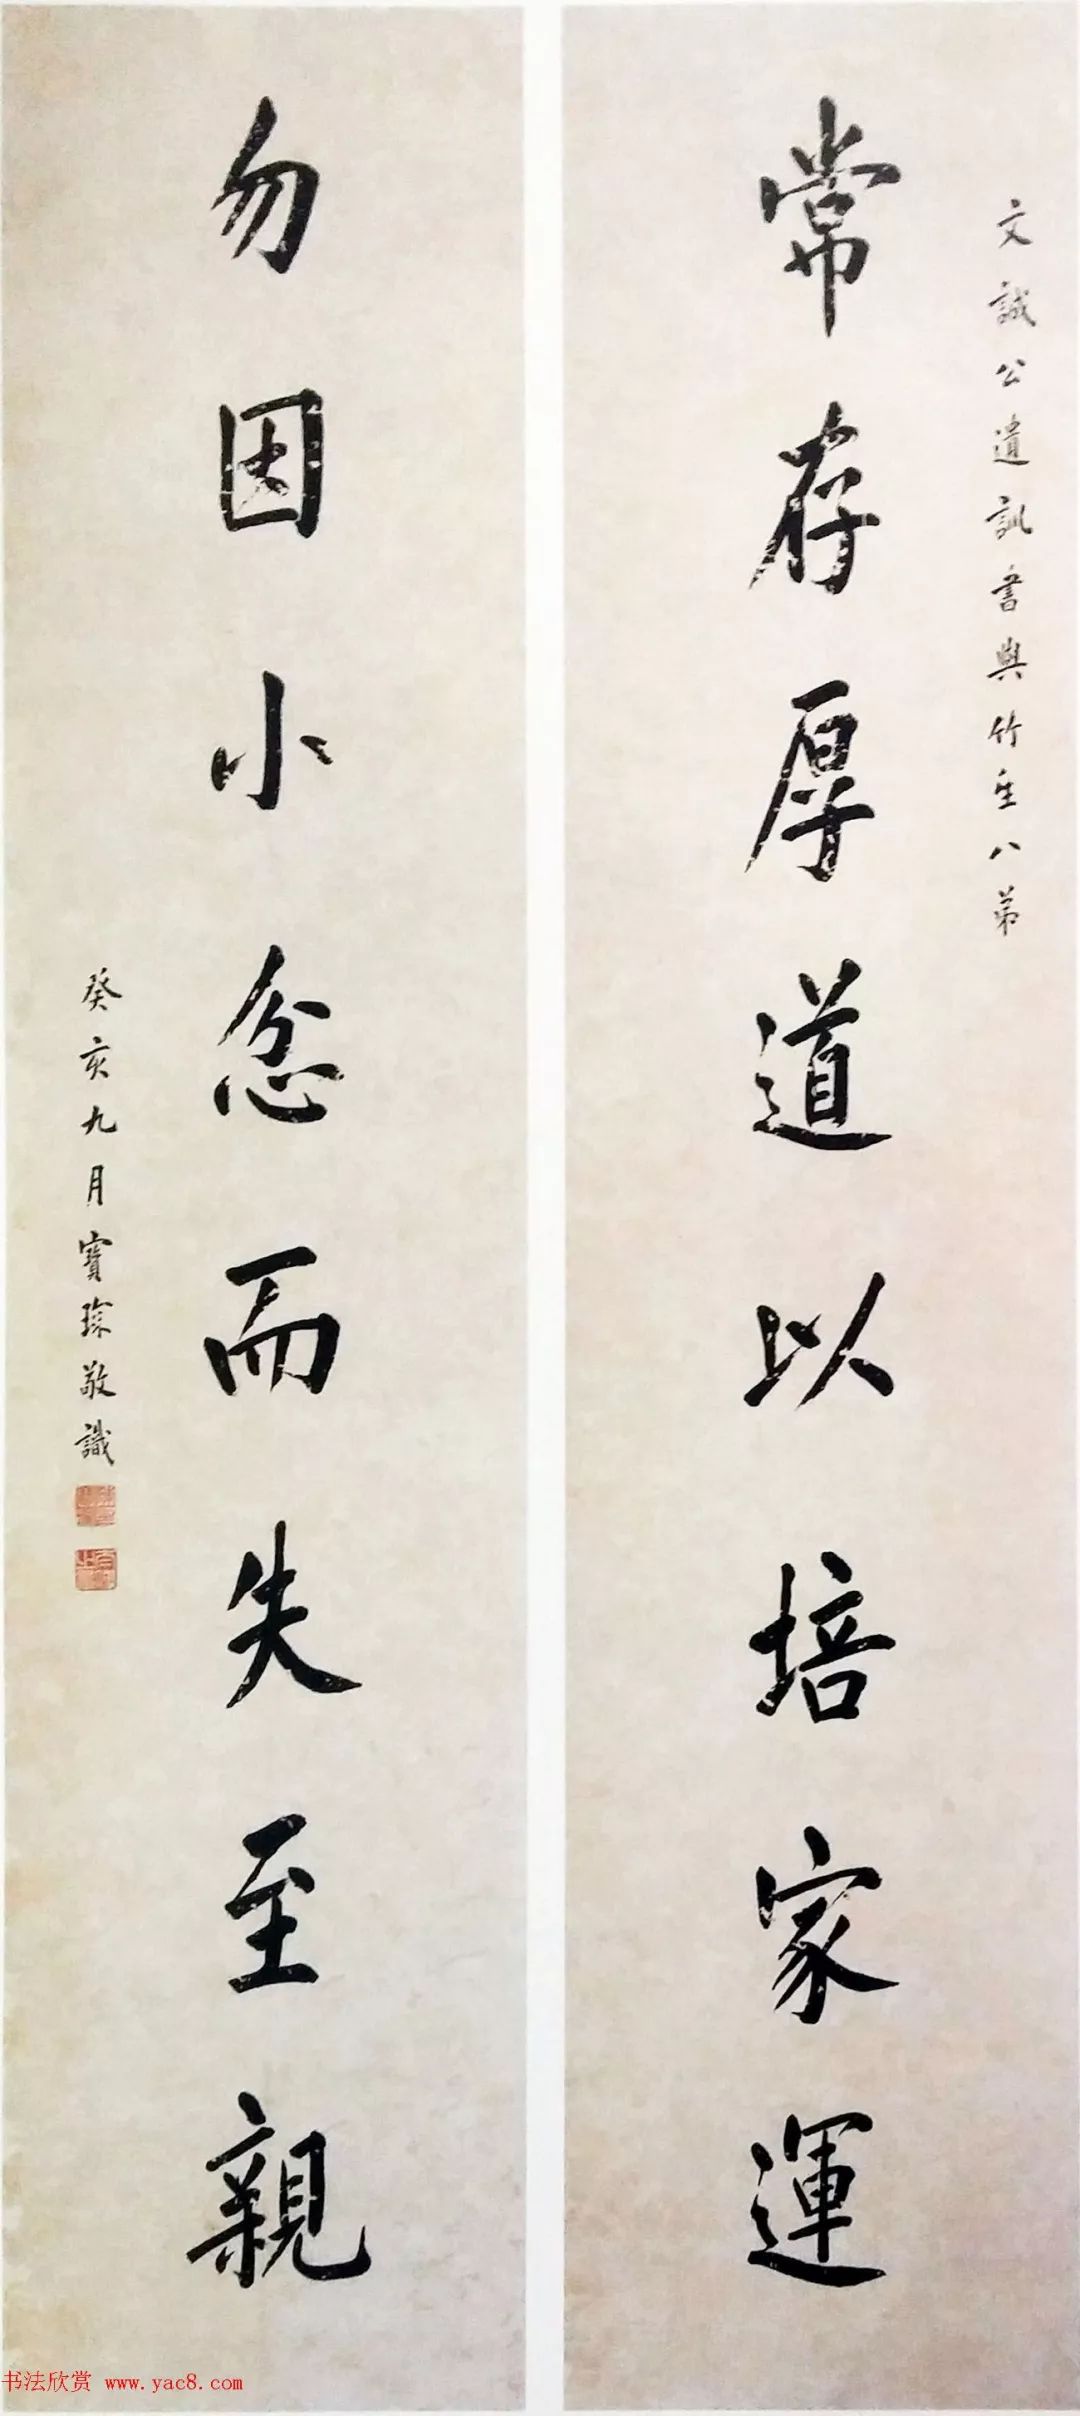 文誠公遺訓書與竹生八弟
常存厚道以培家運
勿因小忿而失至親
癸亥九月寶琛敬識
书法欣赏 www.yac8.com